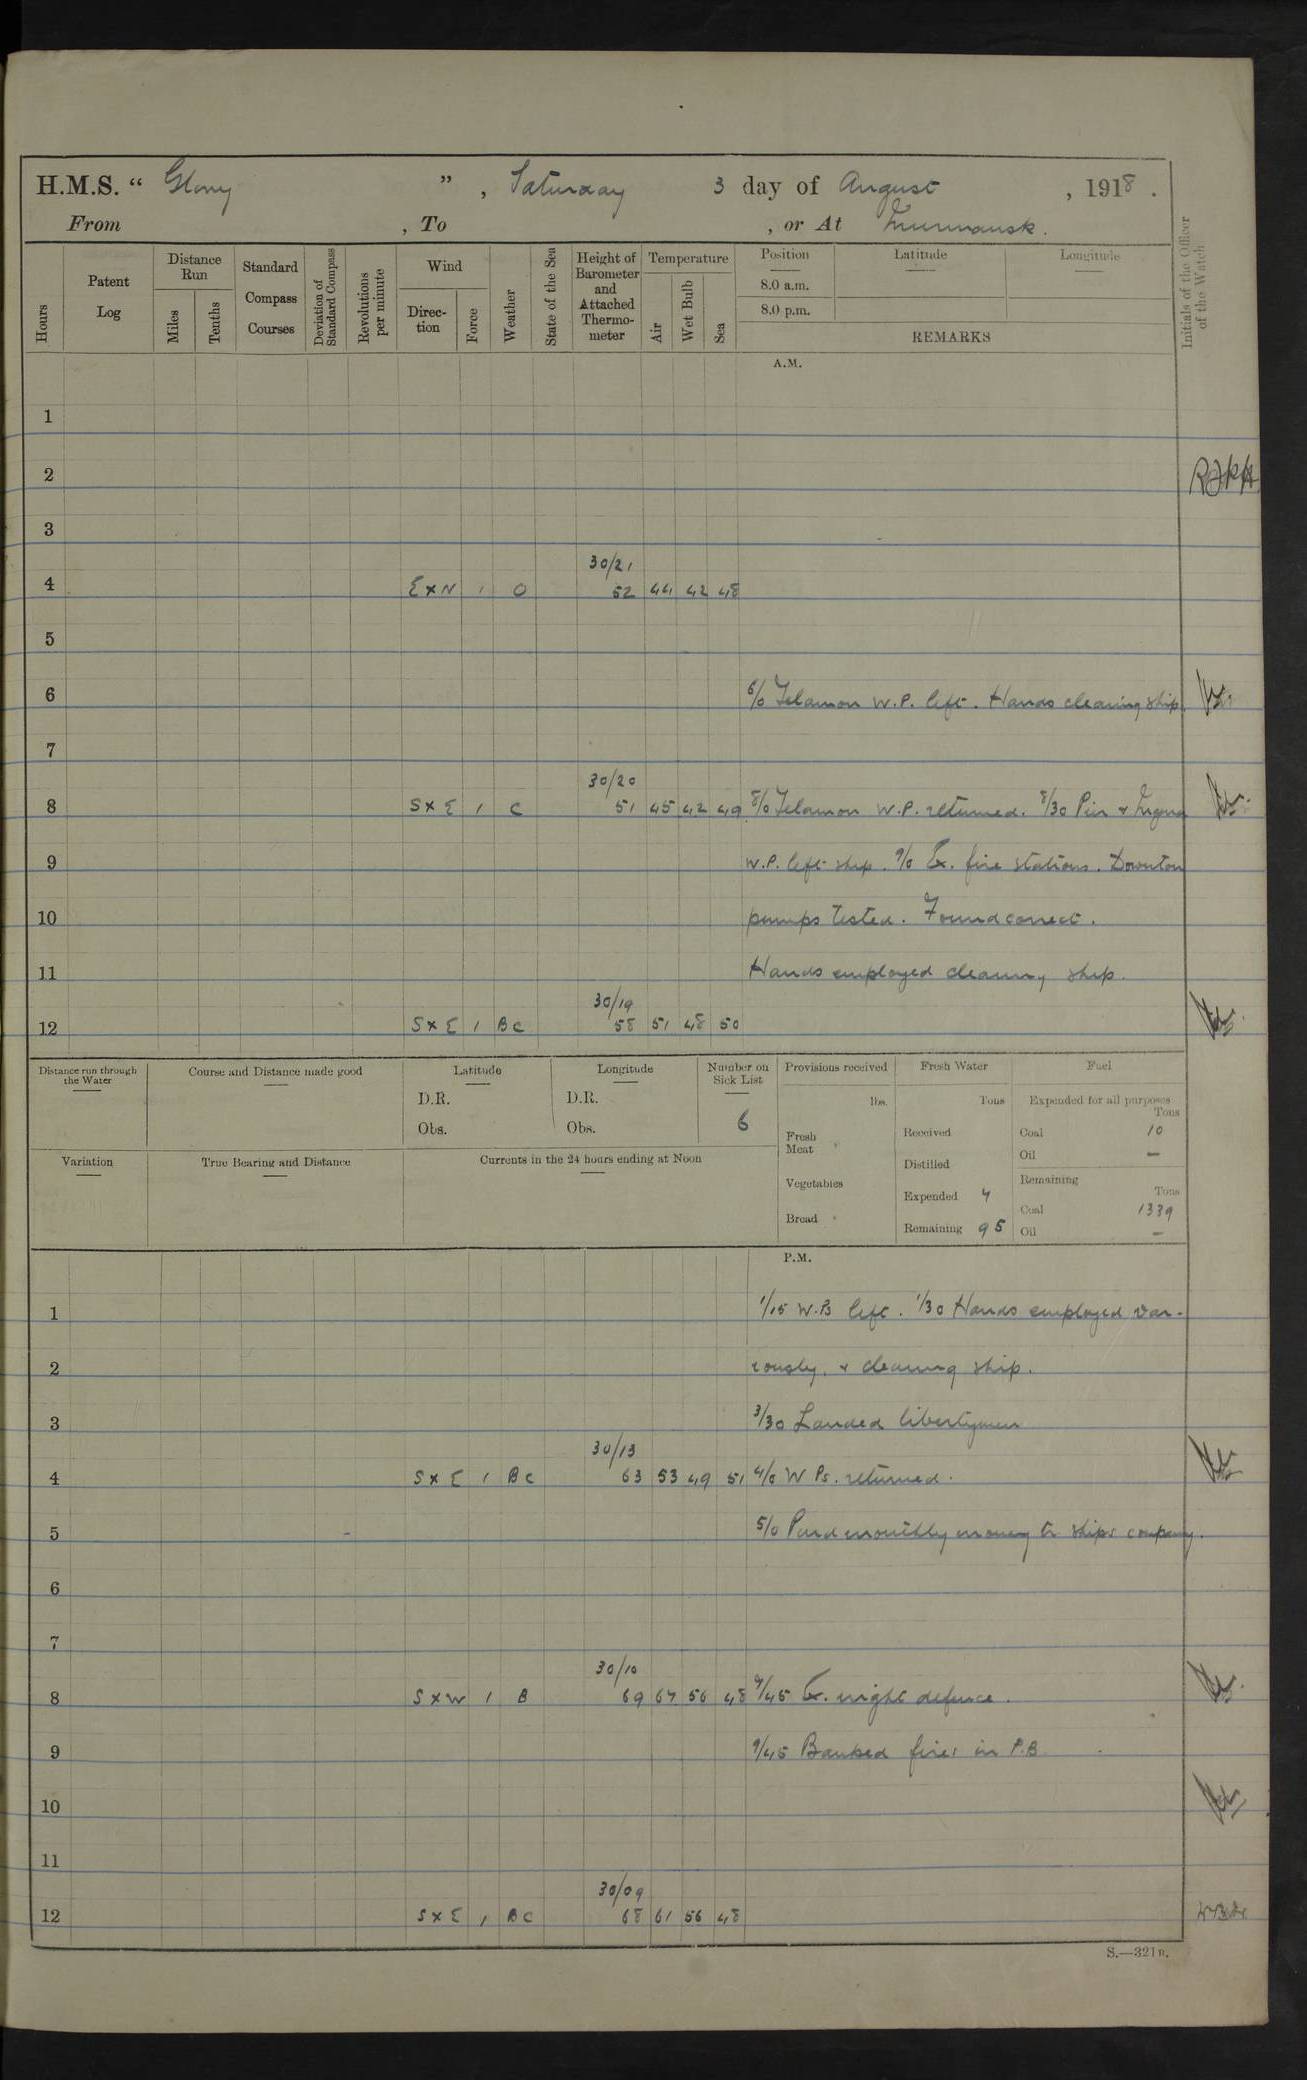 H.M.S. “ Glory ” , Saturday 3 day of August , 1918 .
From , To , or At Murmansk .
Hours
Patent Log
Distance Run
Miles
Tenths
Standard Compass Courses
Deviation of Standard Compass
Revolutions per minute
Wind
Direction
Force
Weather
State of the Sea
Height of Barometer and Attached Thermometer
Temperature
Air
Wet Bulb
Sea
Position
8.0 a.m.
8.0 p.m.
Latitude
Longitude
REMARKS
Initials of the Officer of the Watch
A.M.
1
2
3
30/21
4 E x N 1 O 52 44 42 48
5
6 6/0 Telamon W.P. left. Hands cleaning ship.
7
30/20
8 S x E 1 C 51 45 42 49 8/0 Telamon W.P. returned. 8/30 Pier &
9 W.P. left ship. 9/0 Ex. fire stations. Downton
10 pumps tested. Found correct.
11 Hands employed cleaning ship.
30/19
12 S x E 1 BC 58 51 48 50
Distance run through the Water
Course and Distance made good
Latitude
D.R.
Obs.
Longitude
D.R.
Obs.
Number on Sick List
6
Provisions received
lbs.
Fresh Meat
Vegetables
Bread
Fresh Water
Tons
Received
Distilled
Expended 7
Remaining 95
Fuel
Expended for all purposes
Tons
Coal 10
Oil —
Remaining
Tons
Coal 1339
Oil —
Variation
True Bearing and Distance
Currents in the 24 hours ending at Noon
P.M.
1 1/15 W.P. left. 1/30 Hands employed var-
2 iously, & cleaning ship.
3 3/30 Landed libertymen
30/13
4 S x E 1 BC 63 53 49 51 4/0 W Ps. returned.
5 5/0 Paid monthly money to ships company.
6
7
30/10
8 S x W 1 B 69 67 56 48 7/45 Ex. night defence.
9 9/45 Banked fires in P.B.
10
11
30/09
12 S x E 1 BC 68 61 56 48
S.—321B.